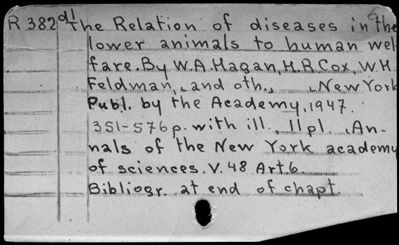 R 382 d1 The Relation of diseases in the
lower animals to human wel-
fare. By W.A. Hagan, H.R. Cox, W.H.
Feldman, and oth., New York
Publ. by the Academy, 1947.
351-576 p. with ill., 11 pl. An-
nals of the New York academy
of sciences. V. 48 Art. 6.
Bibliogr. at end of chapt.